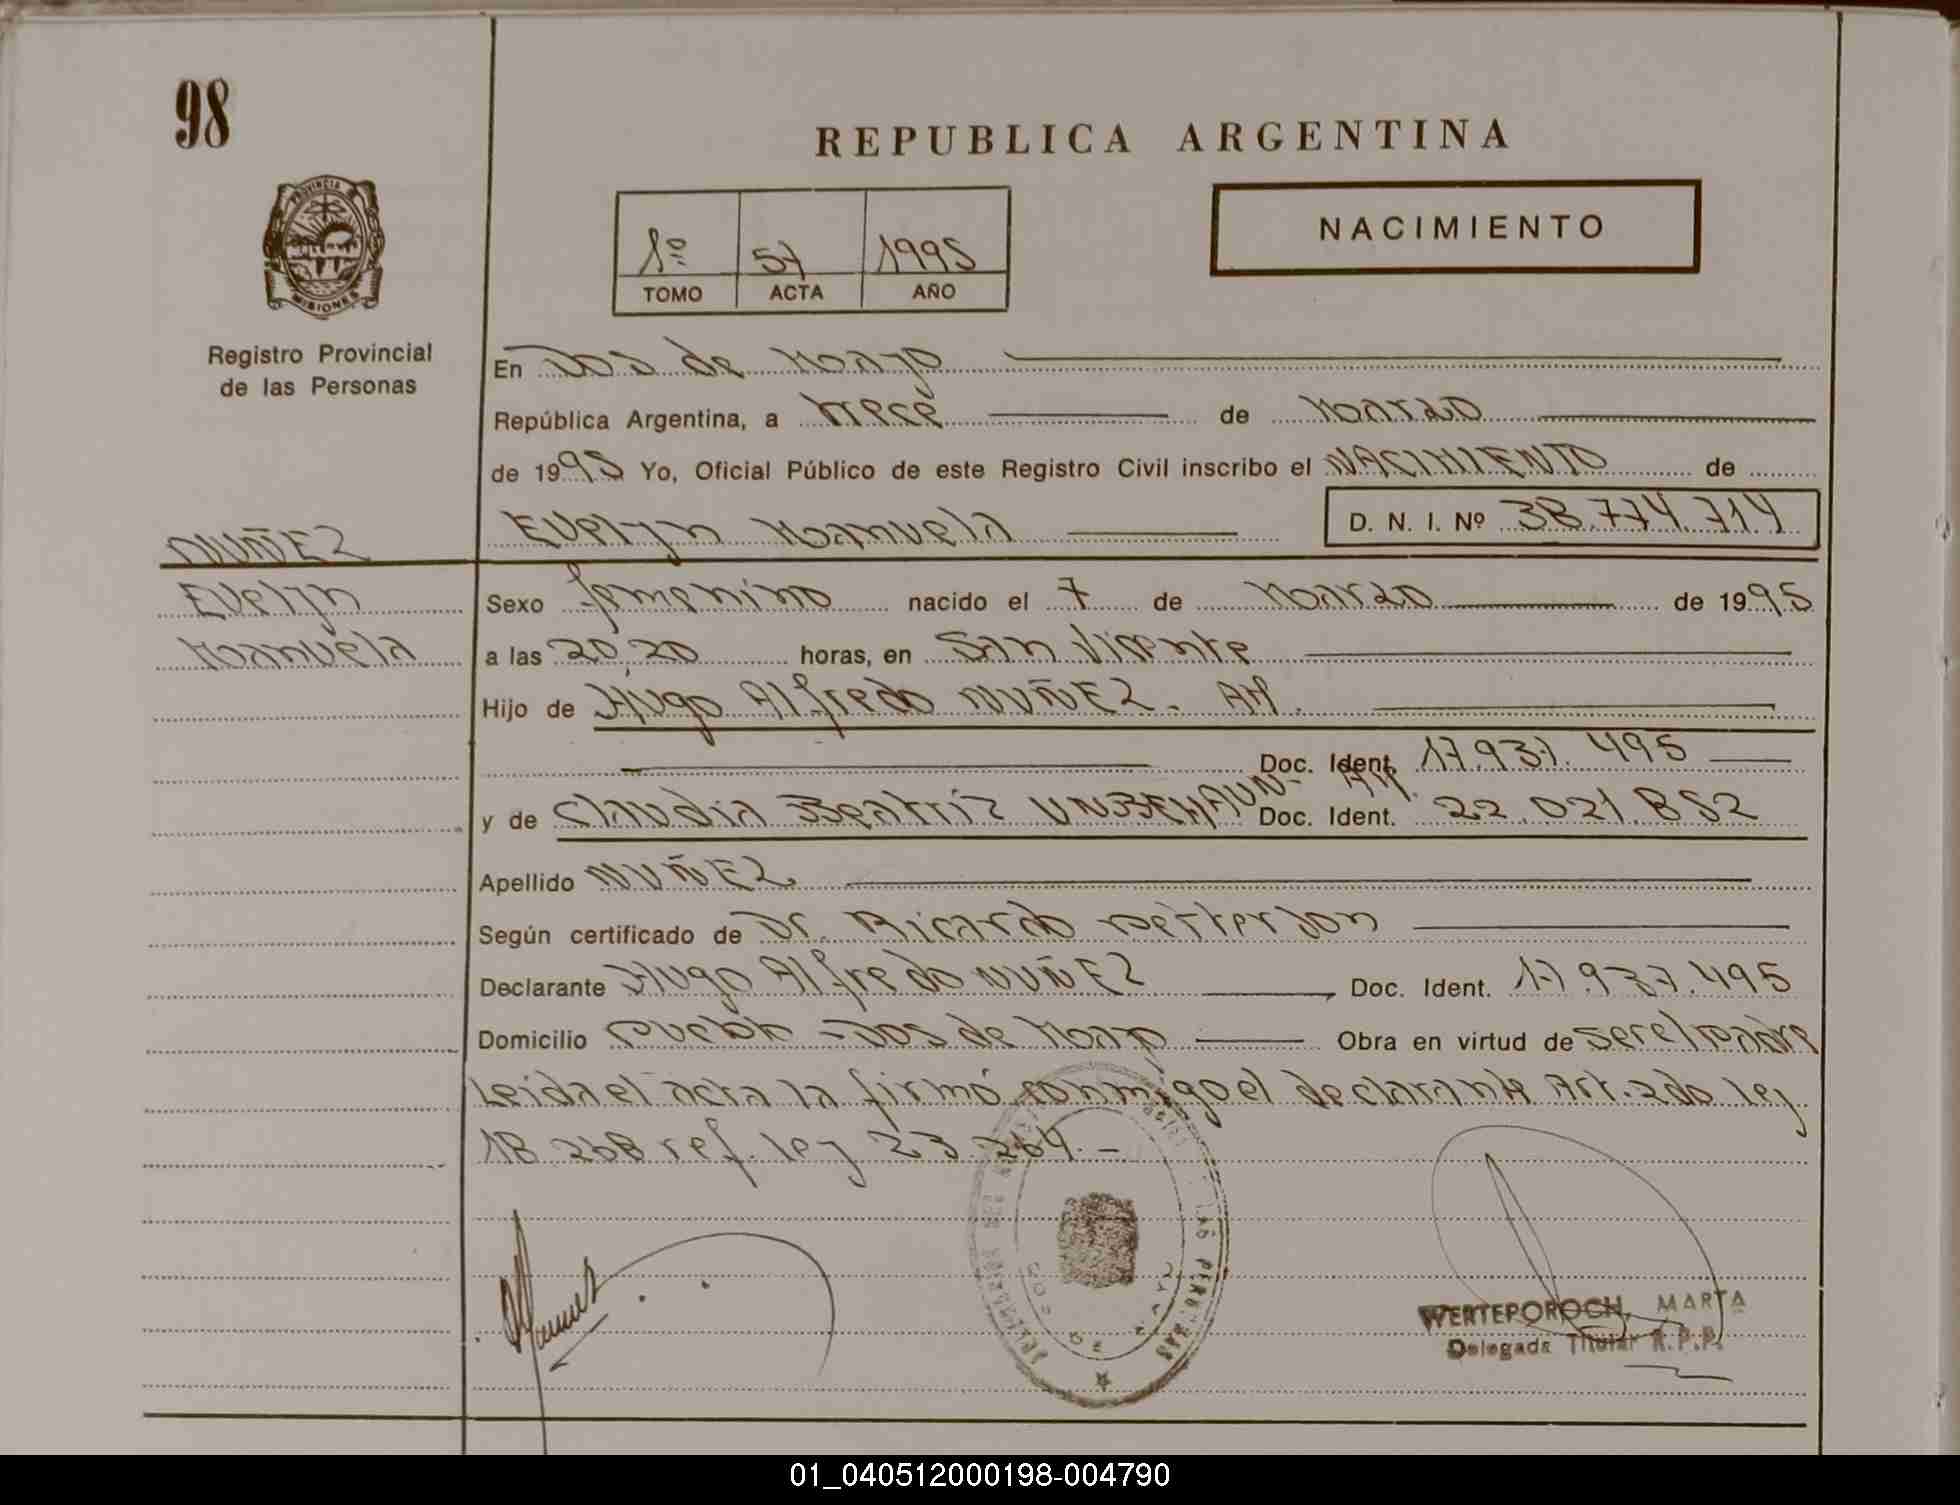 98
REPUBLICA ARGENTINA
PROVINCIA
MISIONES
Registro Provincial
de las Personas
1º 57 1995
TOMO ACTA AÑO
NACIMIENTO
En Dos de Mayo
República Argentina, a trece de Marzo
de 1995 Yo, Oficial Público de este Registro Civil inscribo el NACIMIENTO de
Evelyn Manuela D. N. I. Nº 38.774.714
NUÑEZ
Evelyn
Manuela
Sexo femenino nacido el 7 de Marzo de 1995
a las 20,20 horas, en San Vicente
Hijo de Hugo Alfredo NUÑEZ. AM.
Doc. Ident. 17.937.495
y de Claudia Beatriz UNBEHAUN- AM. Doc. Ident. 22.021.852
Apellido NUÑEZ
Según certificado de Dr. Ricardo Petterson
Declarante Hugo Alfredo NUÑEZ Doc. Ident. 17.937.495
Domicilio Pueblo Dos de Mayo Obra en virtud de ser el padre
Leida el acta la firmó conmigo el declarante Art. 2do ley
18.248 ref. ley 23.264.-
LAS PERSONAS
DOS DE MAYO
WERTEPOROCH, MARTA
Delegada Titular R.P.P.
01_040512000198-004790